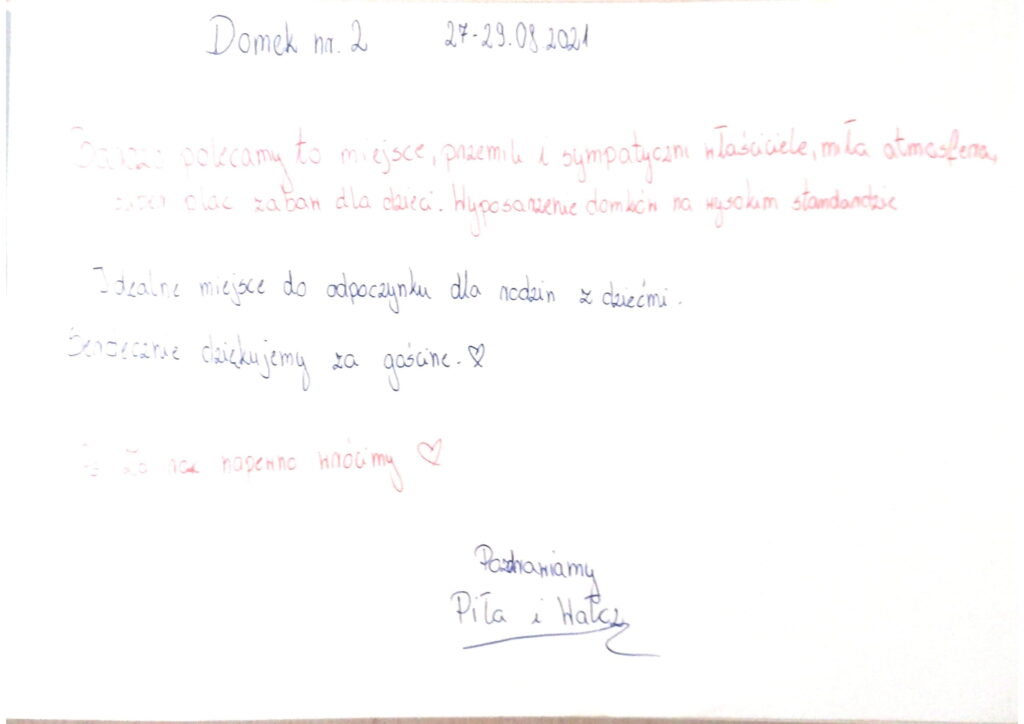 Domek nr. 2 27-29.08.2021
Bardzo polecamy to miejsce, przemili i sympatyczni właściciele, miła atmosfera,
super plac zabaw dla dzieci. Wyposarzenie domków na wysokim standardzie
Idealne miejsce do odpoczynku dla rodzin z dziećmi.
Serdecznie dziękujemy za gościnę. ♡
Za rok napewno wrócimy ♡
Pozdrawiamy
Piła i Wałcz